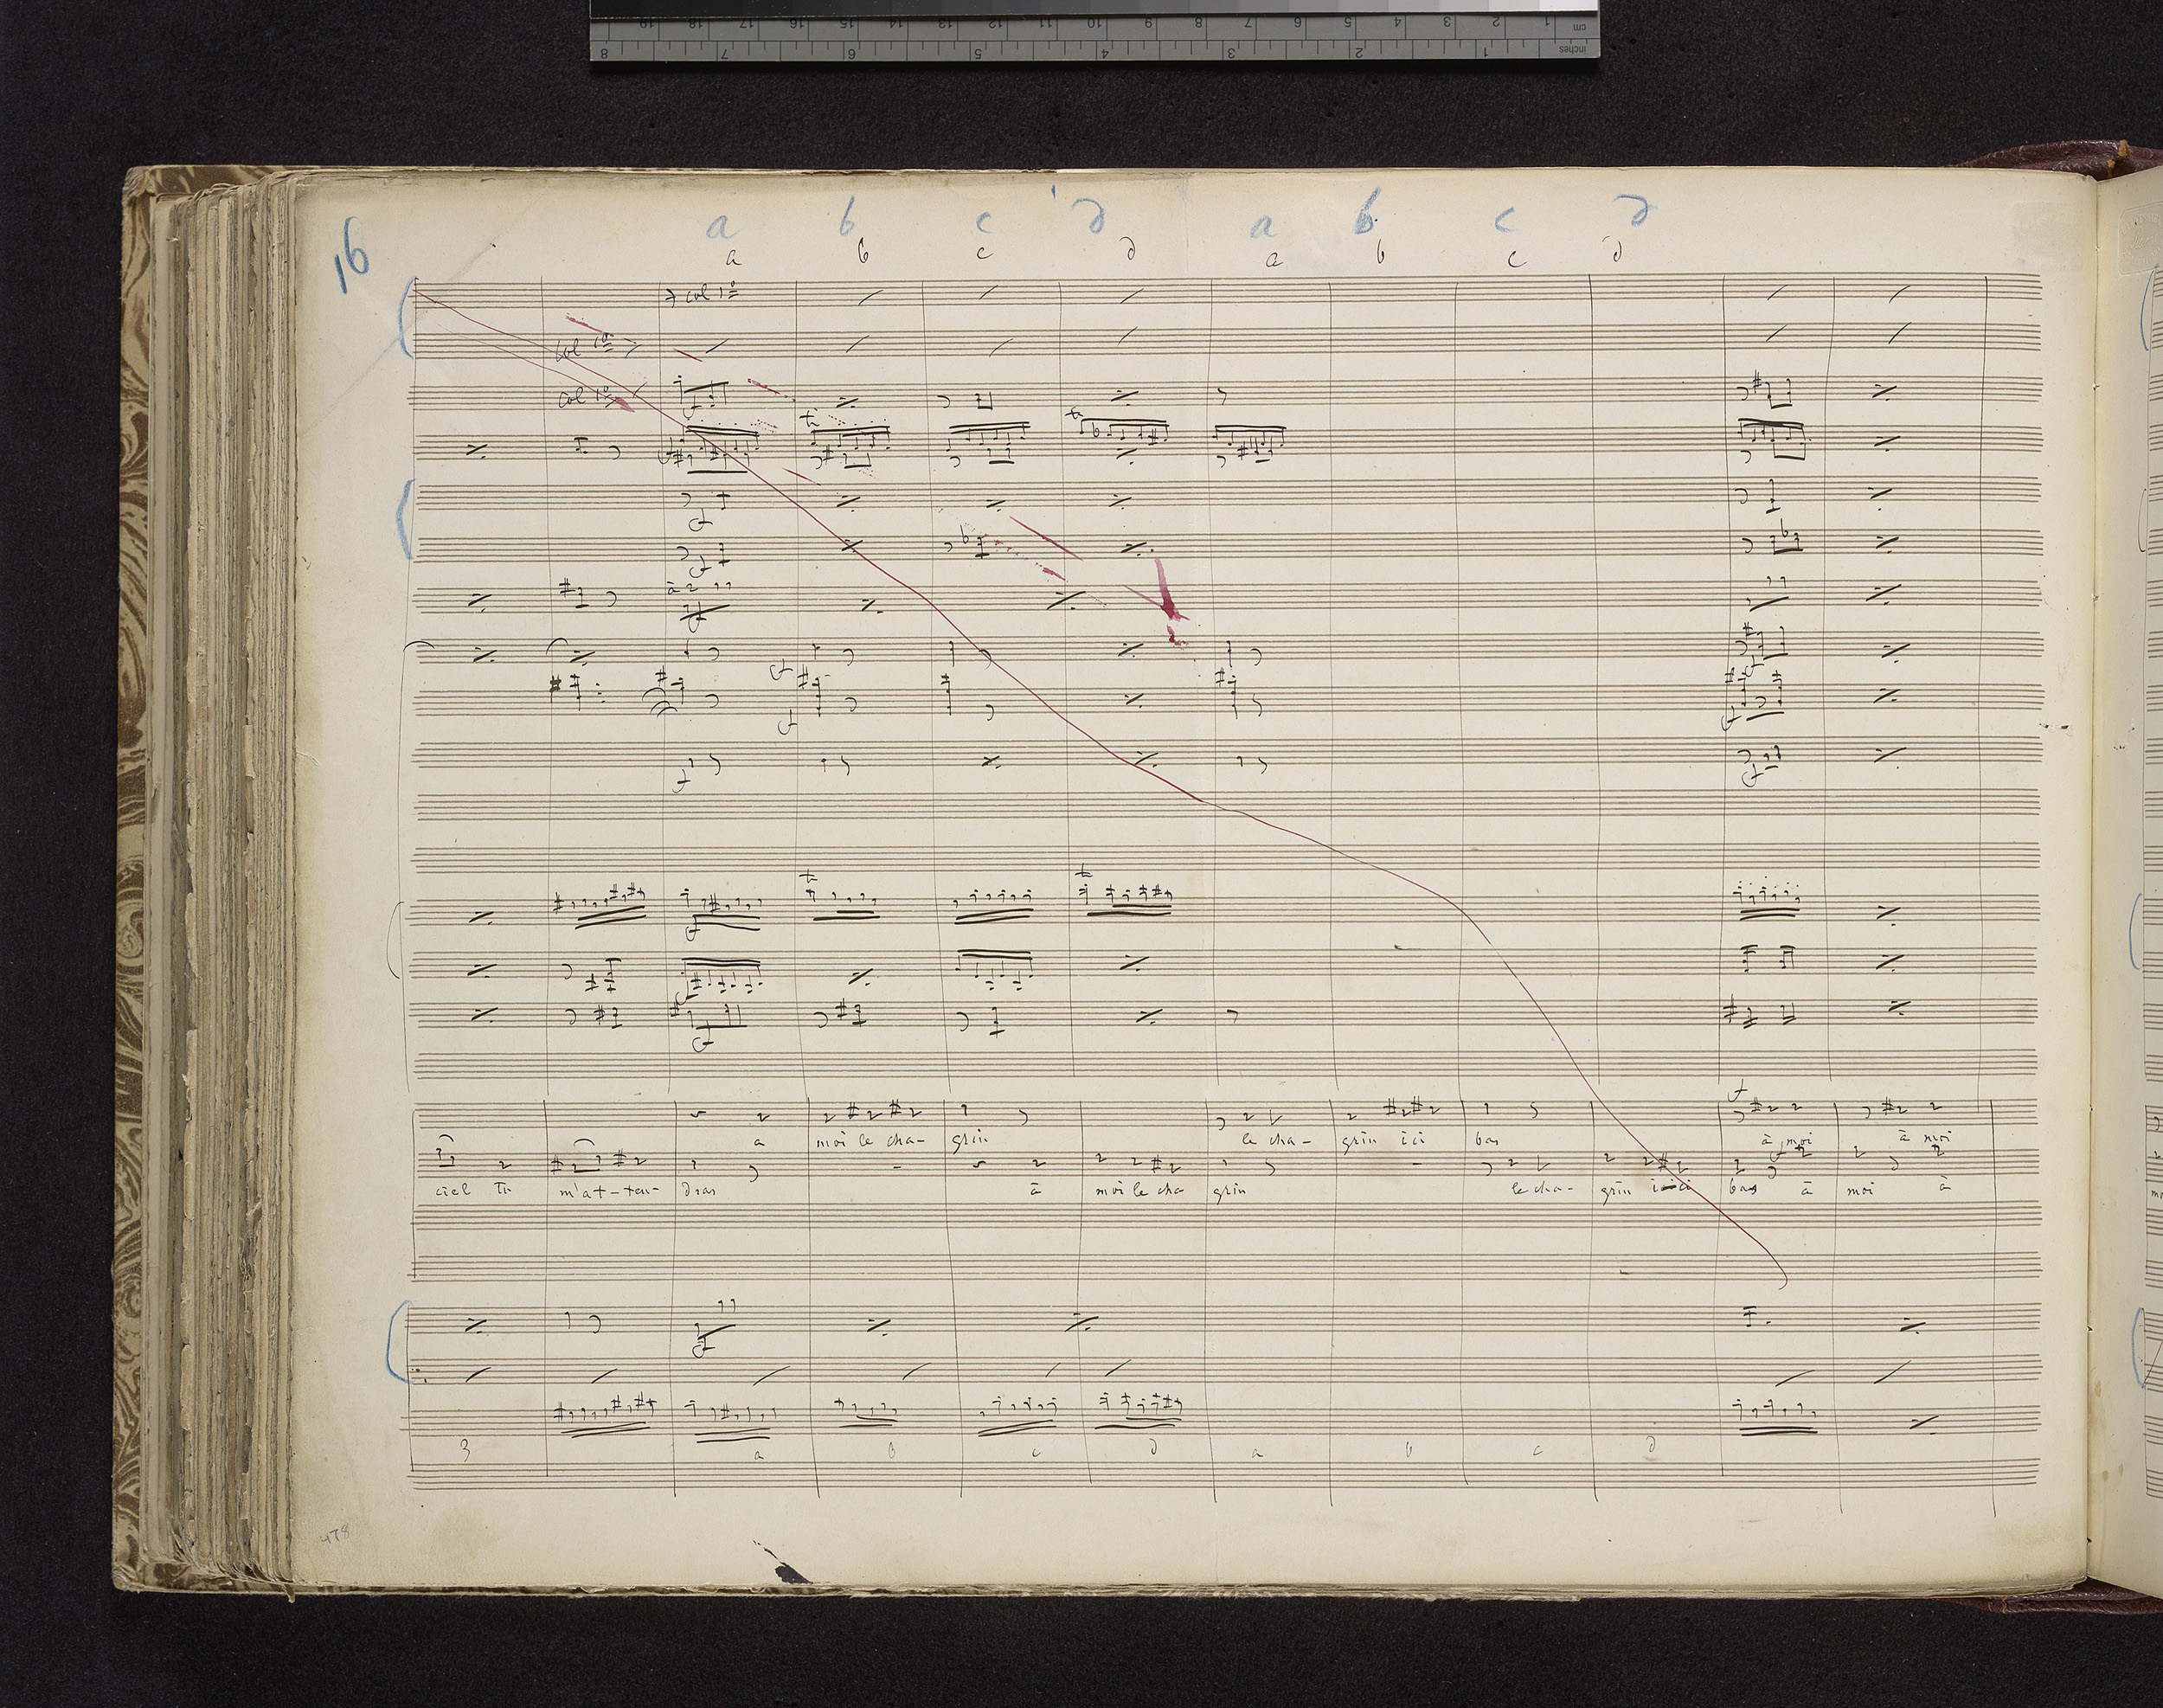 19 18 17 16 15 14 13 12 11 10 9 8 7 6 5 4 3 2 1 cm
8 7 6 5 4 3 2 1 inches
16
a b c d a b c d
a b c d a b c d
col 1º
col 1º
col 1º
à 2
a moi le cha- grin le cha- grin ici bas à moi à moi
ciel tu m'at-ten- dras à moi le cha grin le cha- grin ici bas à moi à
3 a b c d a b c d
478